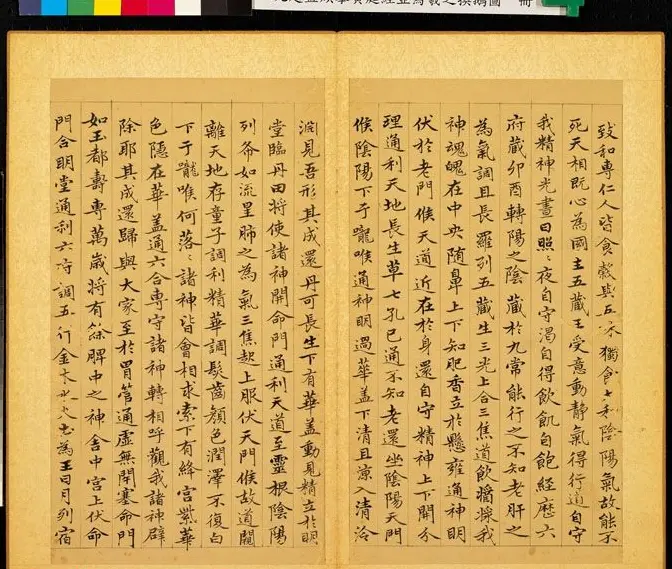 之換鵝圖 冊
致和專仁人皆食穀與五味獨食七和陰陽氣故能不
死天相既心為國主五藏王受意動靜氣得行道自守
我精神光晝日照〻夜自守渴自得飲飢自飽經歷六
府藏卯酉轉陽之陰藏於九常能行之不知老肝之
為氣調且長羅列五藏生三光上合三焦道飲醬漿我
神魂魄在中央隨鼻上下知肥香立於懸雍通神明
伏於老門候天道近在於身還自守精神上下開分
理通利天地長生草七孔已通不知老還坐陰陽天門
候陰陽下于嚨喉通神明過華蓋下清且涼入清泠
淵見吾形其成還丹可長生下有華蓋動見精立於明
堂臨丹田將使諸神開命門通利天道至靈根陰陽
列布如流星肺之為氣三焦起上服伏天門候故道闚
離天地存童子調利精華調髮齒顏色潤澤不復白
下于嚨喉何落〻諸神皆會相求索下有絳宮紫華
色隱在華蓋通六合專守諸神轉相呼觀我諸神辟
除耶其成還歸與大家至於胃管通虛無閉塞命門
如玉都壽專萬歲將有餘脾中之神舍中宮上伏命
門合明堂通利六府調五行金木水火土為王日月列宿